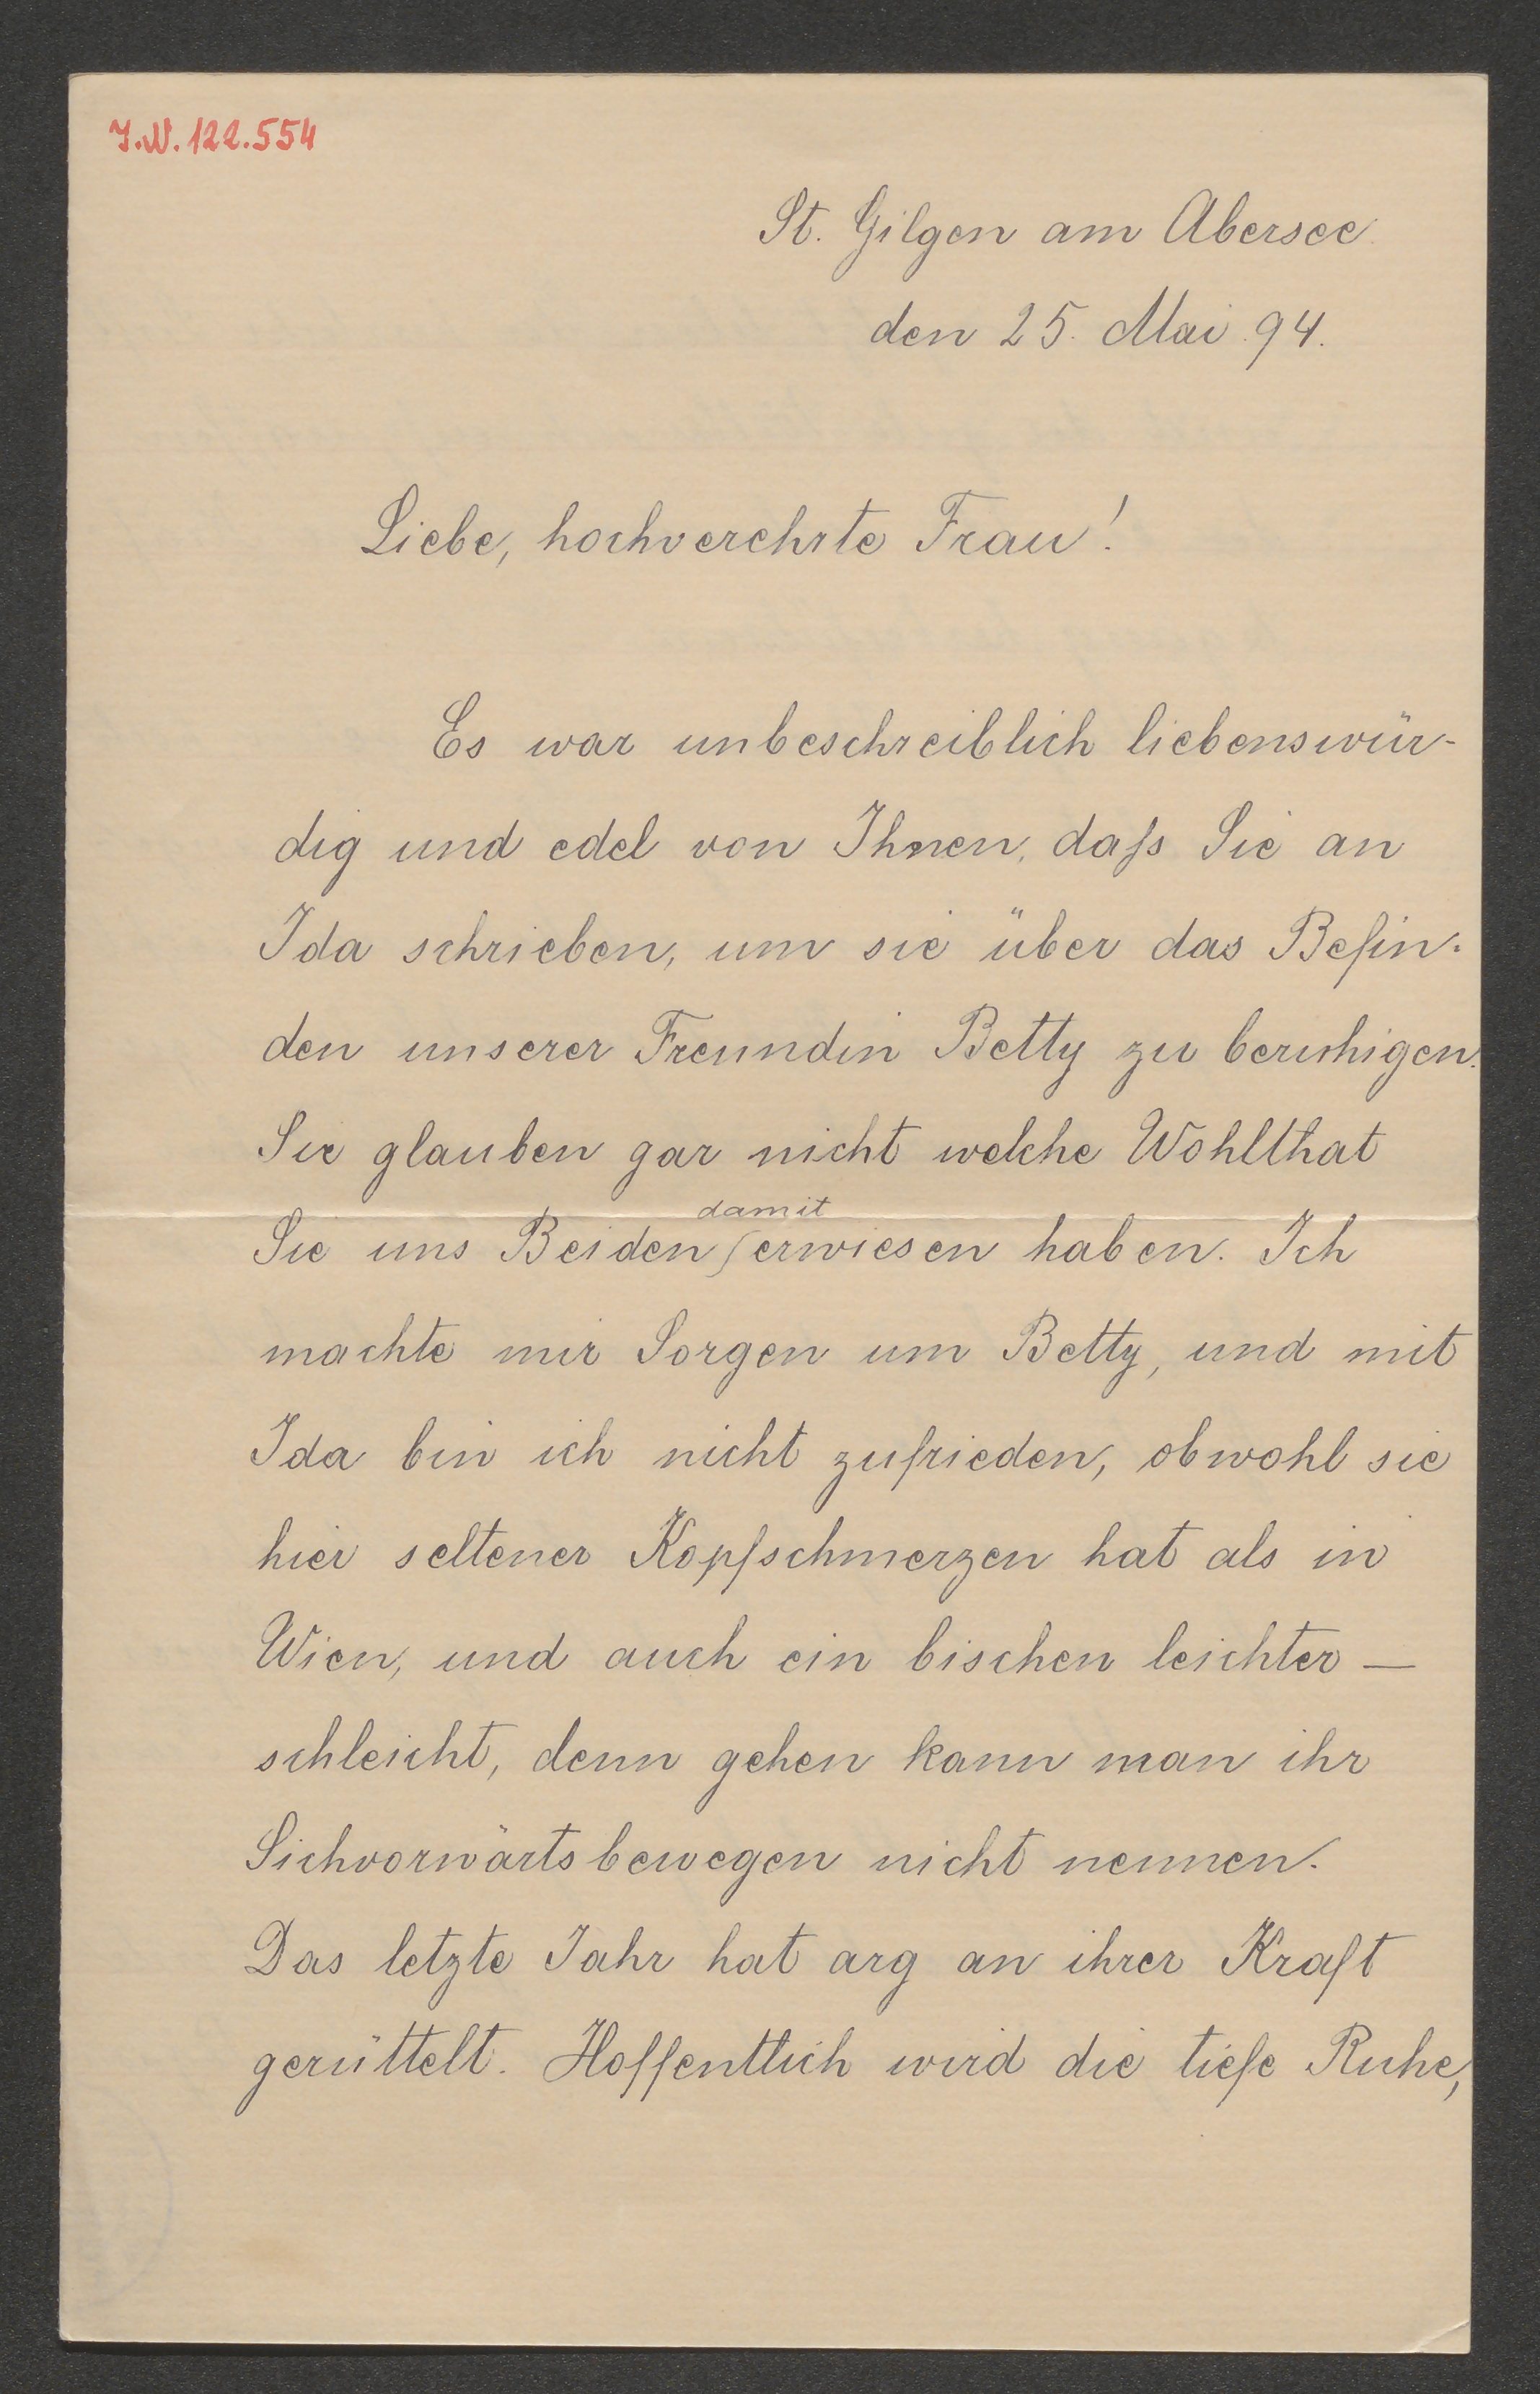 I.N. 122.554
St. Gilgen am Abersee
den 25. Mai 94.
Liebe, hochverehrte Frau!
Es war unbeschreiblich liebenswür-
dig und edel von Ihnen, daſs Sie an
Ida schrieben, um sie über das Befin-
den unserer Freundin Betty zu beruhigen.
Sie glauben gar nicht welche Wohlthat
damit
Sie uns Beiden erwiesen haben. Ich
machte mir Sorgen um Betty, und mit
Ida bin ich nicht zufrieden, obwohl sie
hier seltener Kopfschmerzen hat als in
Wien, und auch ein bischen leichter —
schleicht, denn gehen kann man ihr
Sichvorwärtsbewegen nicht nennen.
Das letzte Jahr hat arg an ihrer Kraft
gerüttelt. Hoffentlich wird die tiefe Ruhe,